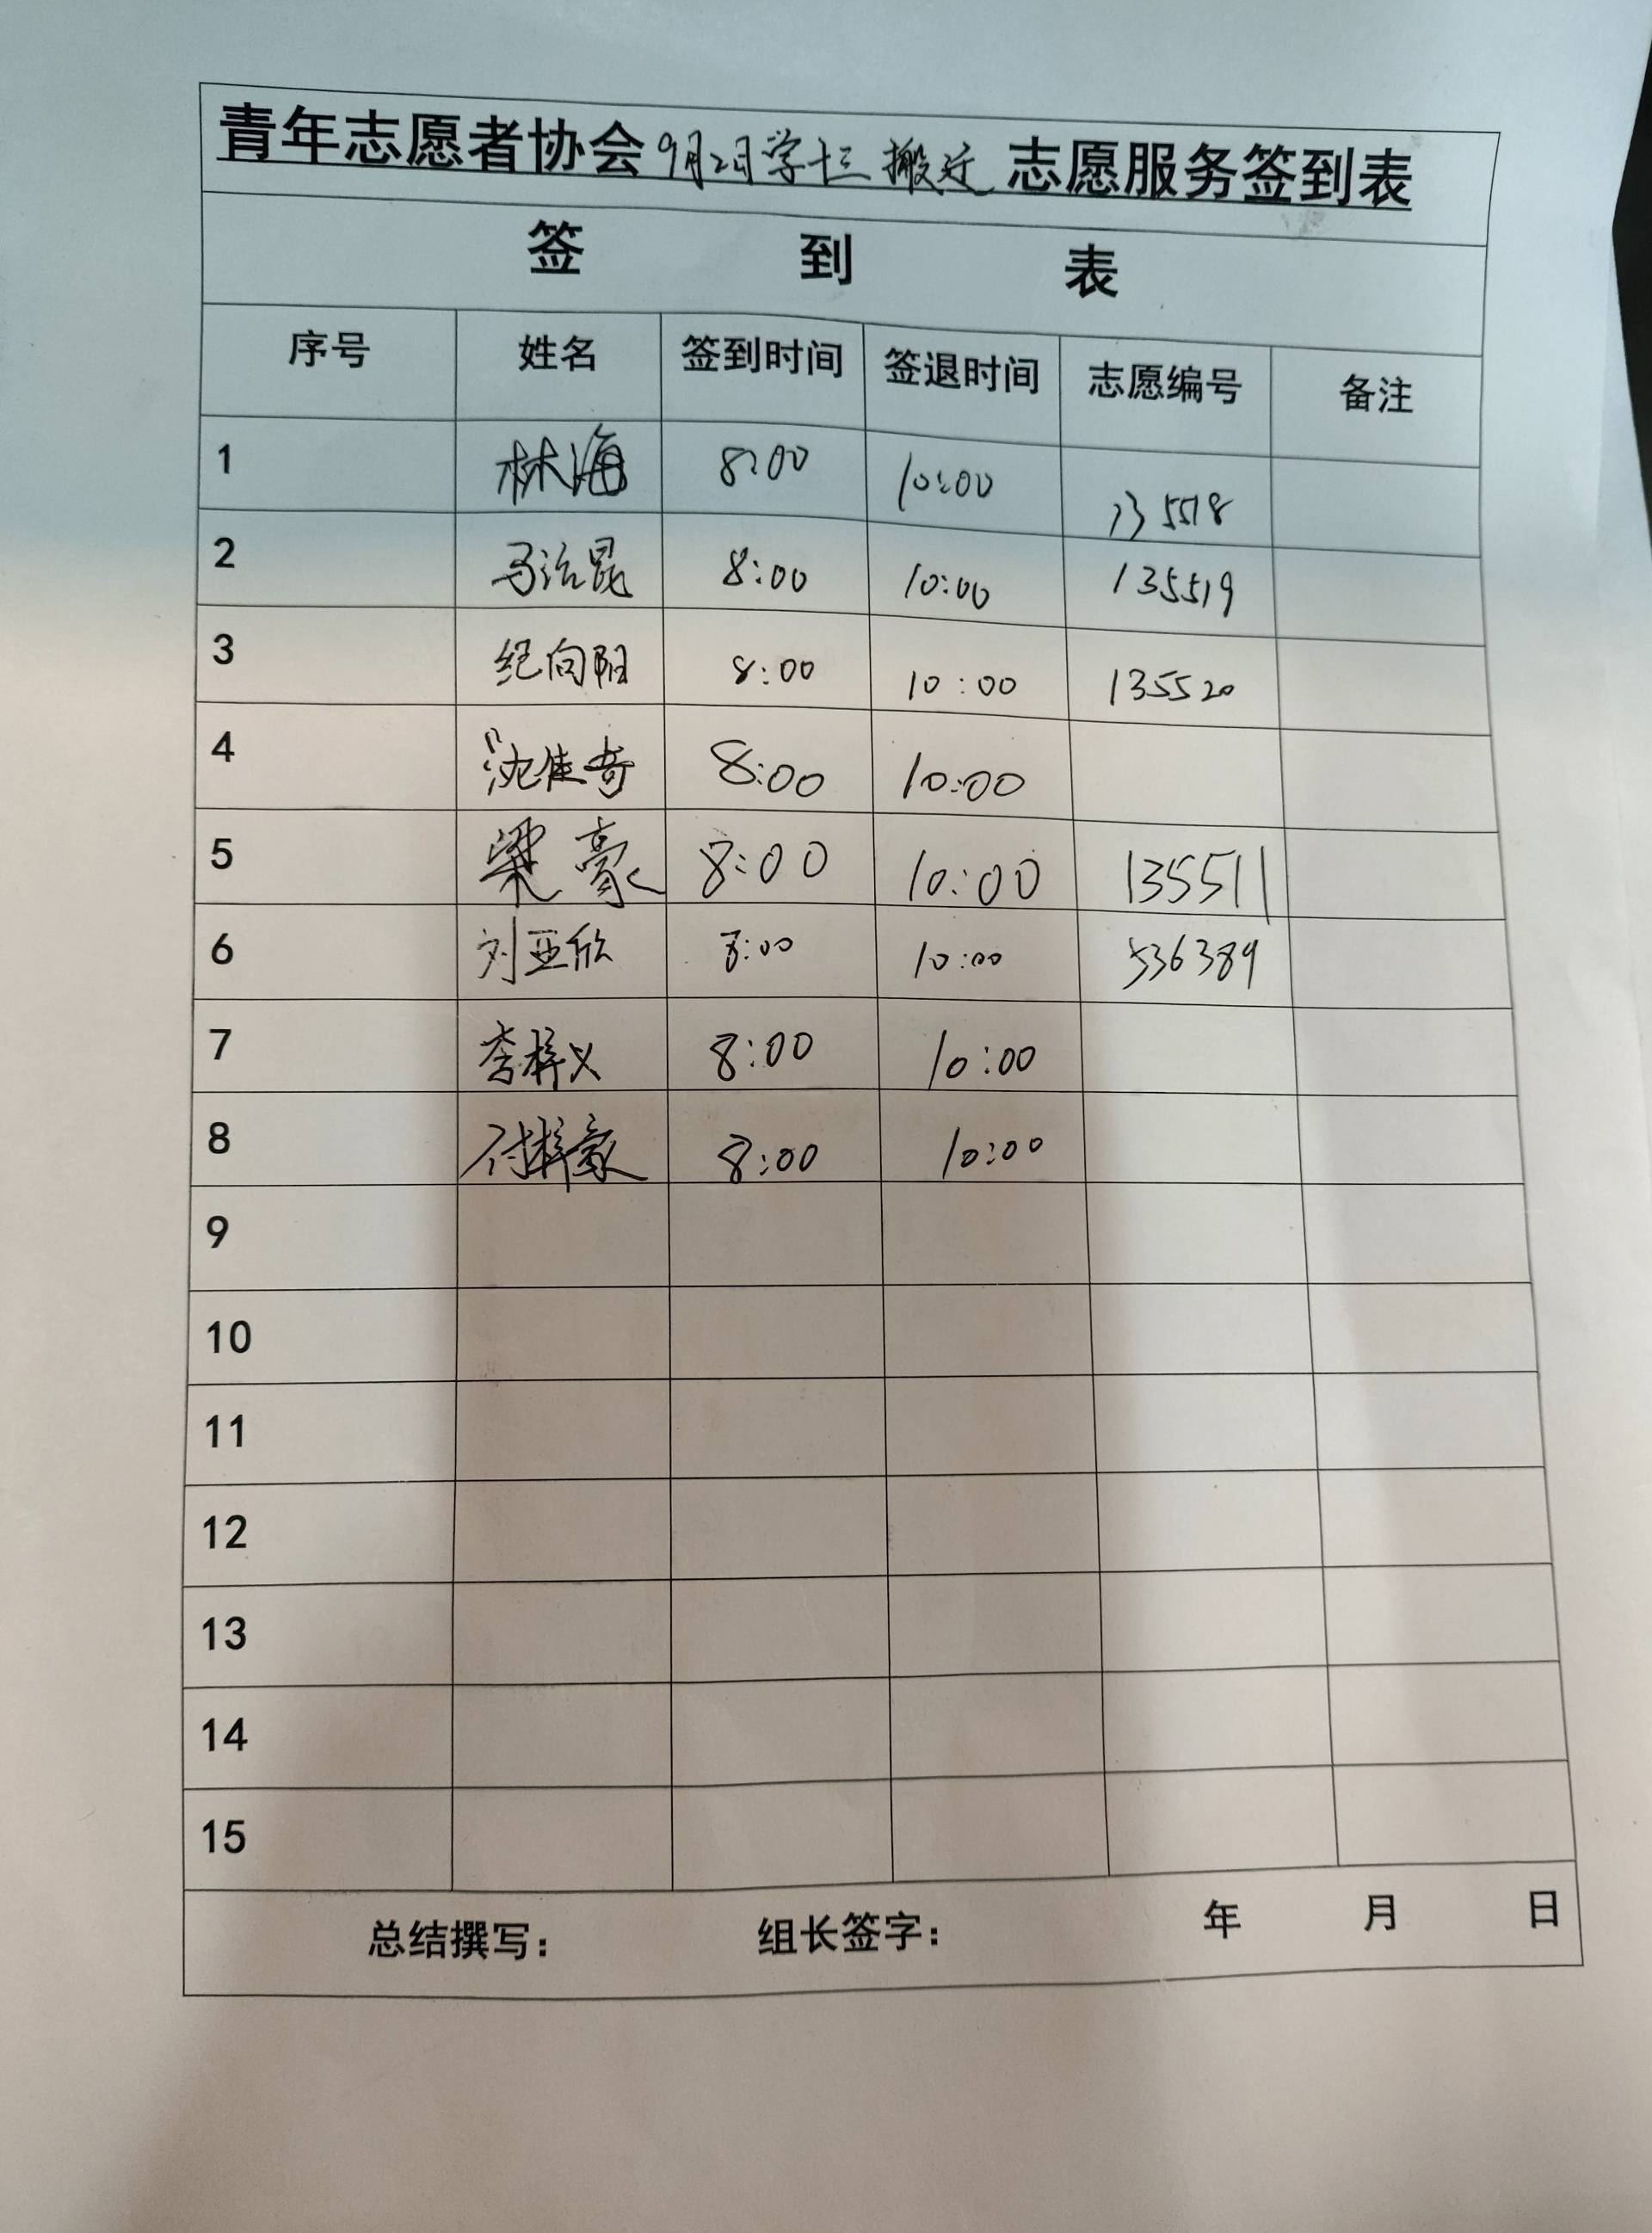 青年志愿者协会9月2日学十三搬迁志愿服务签到表
签 到 表
序号 姓名 签到时间 签退时间 志愿编号 备注
1 林海 8:00 10:00 135518
2 8:00 10:00 135519
3 纪向阳 8:00 10:00 135520
4 沈佳奇 8:00 10:00
5 梁豪 8:00 10:00 135511
6 刘亚欣 8:00 10:00 536389
7 李梓义 8:00 10:00
8 付梓豪 8:00 10:00
9
10
11
12
13
14
15
总结撰写： 组长签字： 年 月 日